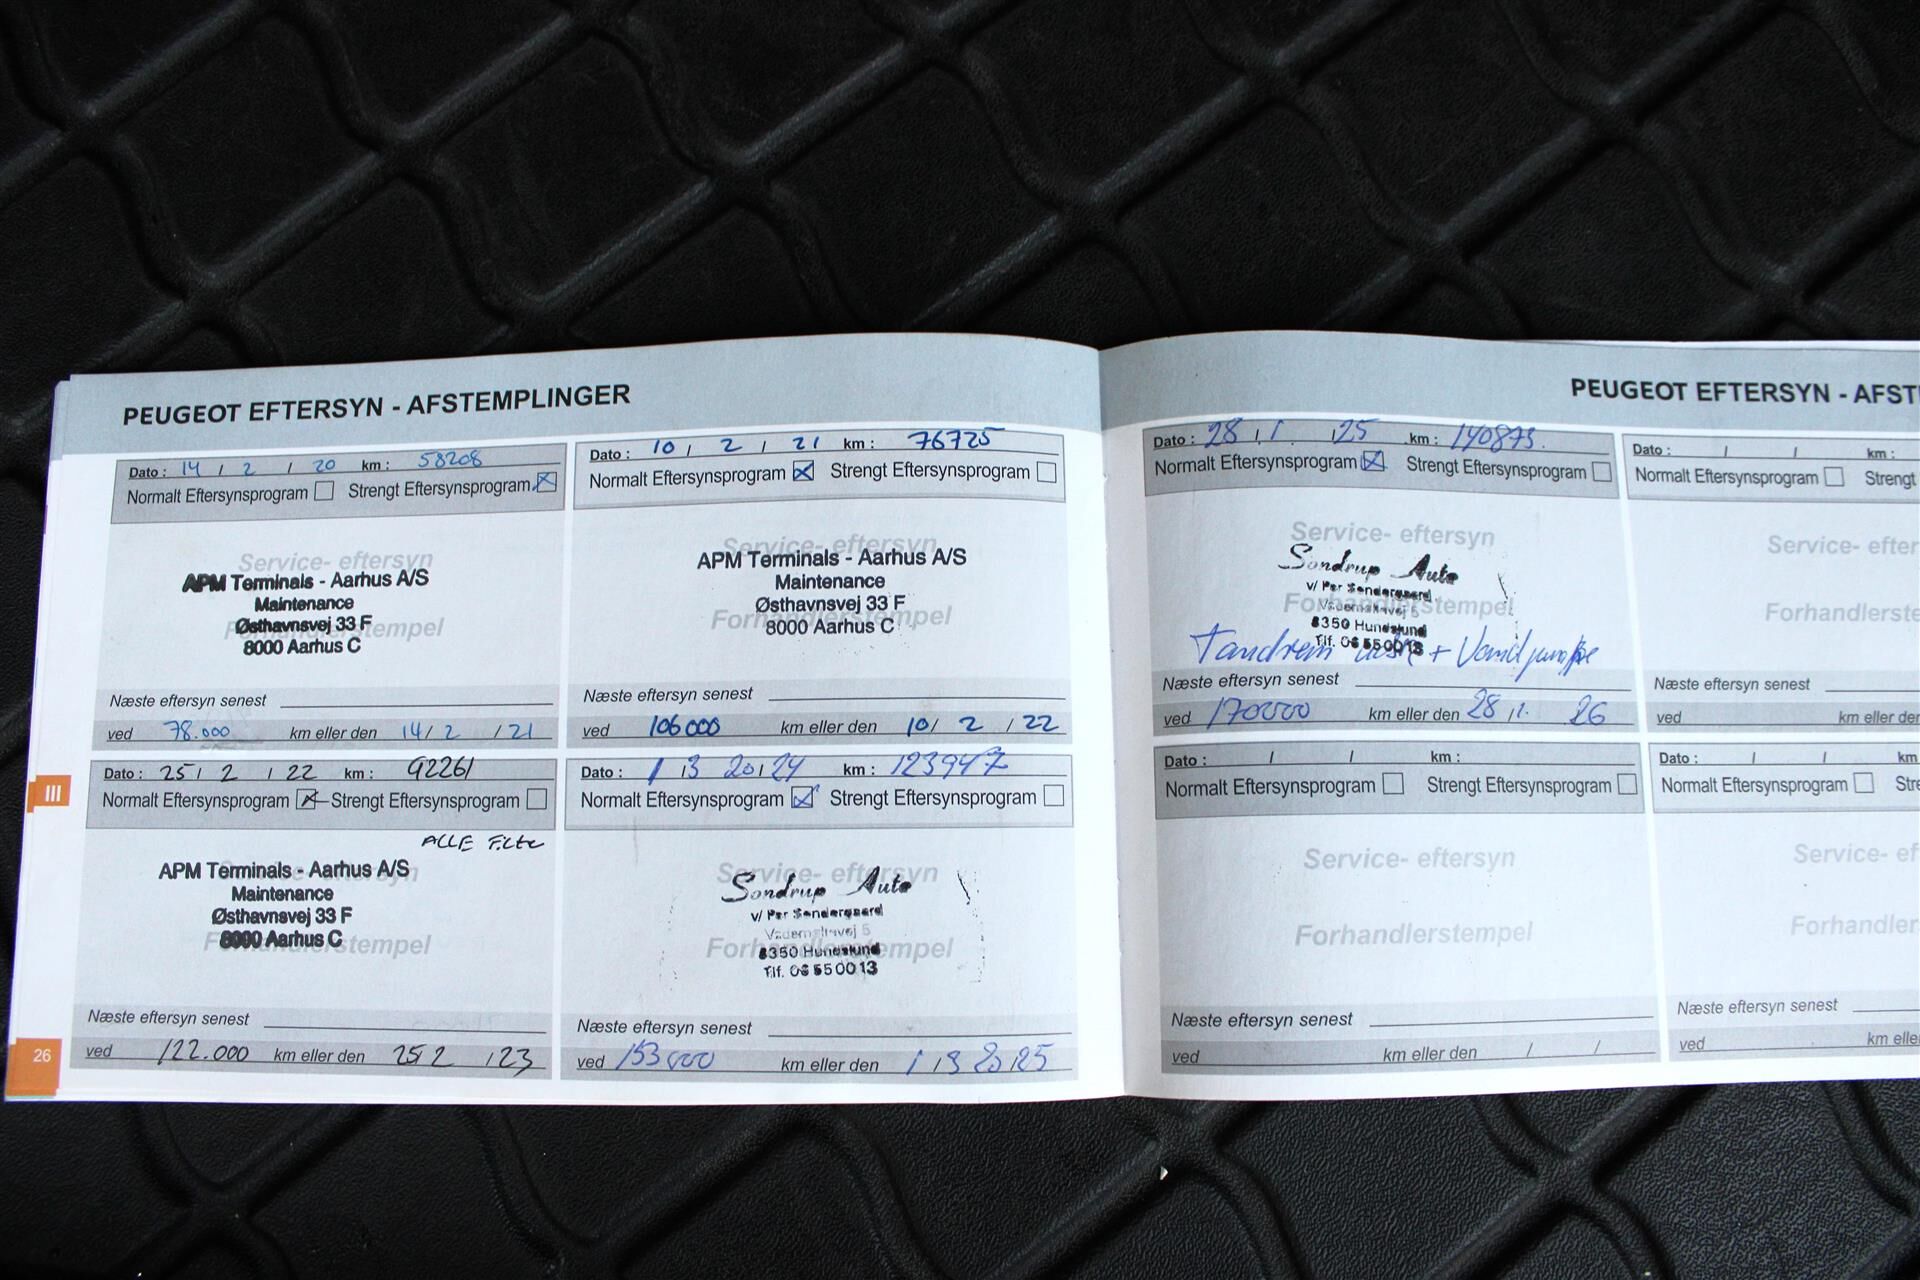 PEUGEOT EFTERSYN - AFSTEMPLINGER
Dato : 14 / 2 / 20 km : 58208
Normalt Eftersynsprogram Strengt Eftersynsprogram
Service- eftersyn
APM Terminals - Aarhus A/S
Maintenance
Østhavnsvej 33 F
Forhandlerstempel
8000 Aarhus C
Næste eftersyn senest
ved 78.000 km eller den 14 / 2 / 21
Dato : 10 / 2 / 21 km : 76725
Normalt Eftersynsprogram Strengt Eftersynsprogram
Service- eftersyn
APM Terminals - Aarhus A/S
Maintenance
Østhavnsvej 33 F
Forhandlerstempel
8000 Aarhus C
Næste eftersyn senest
ved 106000 km eller den 10 / 2 / 22
Dato : 25 / 2 / 22 km : 92261
Normalt Eftersynsprogram Strengt Eftersynsprogram
ALLE
Service- eftersyn
APM Terminals - Aarhus A/S
Maintenance
Østhavnsvej 33 F
Forhandlerstempel
8000 Aarhus C
Næste eftersyn senest
ved 122.000 km eller den 25 / 2 / 23
Dato : 1 / 3 20 / 24 km : 123947
Normalt Eftersynsprogram Strengt Eftersynsprogram
Service- eftersyn
Sondrup Auto
v/ Per Søndergaard
Forhandlerstempel
8350 Hundslund
Tlf.
Næste eftersyn senest
ved 153000 km eller den 1 / 3 20 / 25
III
26
PEUGEOT EFTERSYN - AFST
Dato : 28 / 1. / 25 km : 140873.
Normalt Eftersynsprogram Strengt Eftersynsprogram
Service- eftersyn
Sondrup Auto
v/ Per Søndergaard
Forhandlerstempel
8350 Hundslund
Tlf.
Tandrem + Vandpumpe
Næste eftersyn senest
ved 170000 km eller den 28 / 1. 26
Dato : / / km :
Normalt Eftersynsprogram Strengt
Service- efter
Forhandlerste
Næste eftersyn senest
ved km eller den
Dato : / / km :
Normalt Eftersynsprogram Strengt Eftersynsprogram
Service- eftersyn
Forhandlerstempel
Næste eftersyn senest
ved km eller den / /
Dato : / / km
Normalt Eftersynsprogram Stre
Service- ef
Forhandler
Næste eftersyn senest
ved km elle